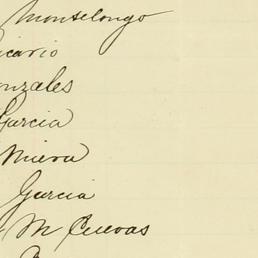 Montelongo
icario
onzales
Garcia
Nueva
Garcia
M Cuevas